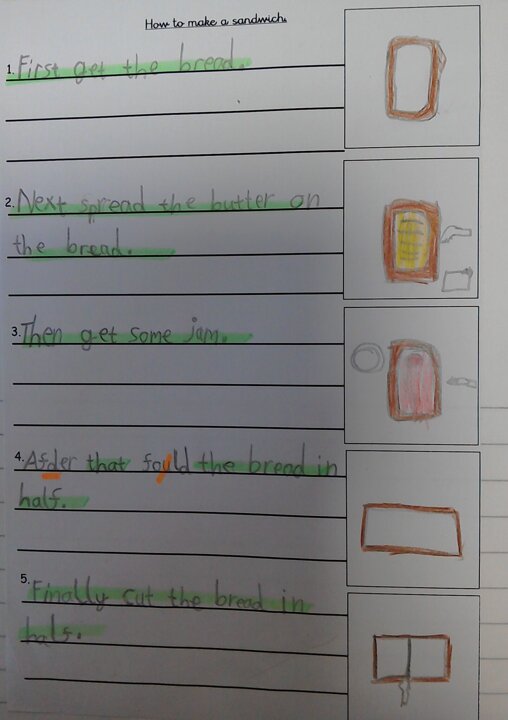 How to make a sandwich.
1. First get the bread.
2. Next spread the butter on
the bread.
3. Then get some jam.
4. Afder that fould the bread in
half.
5. Finally cut the bread in
half.